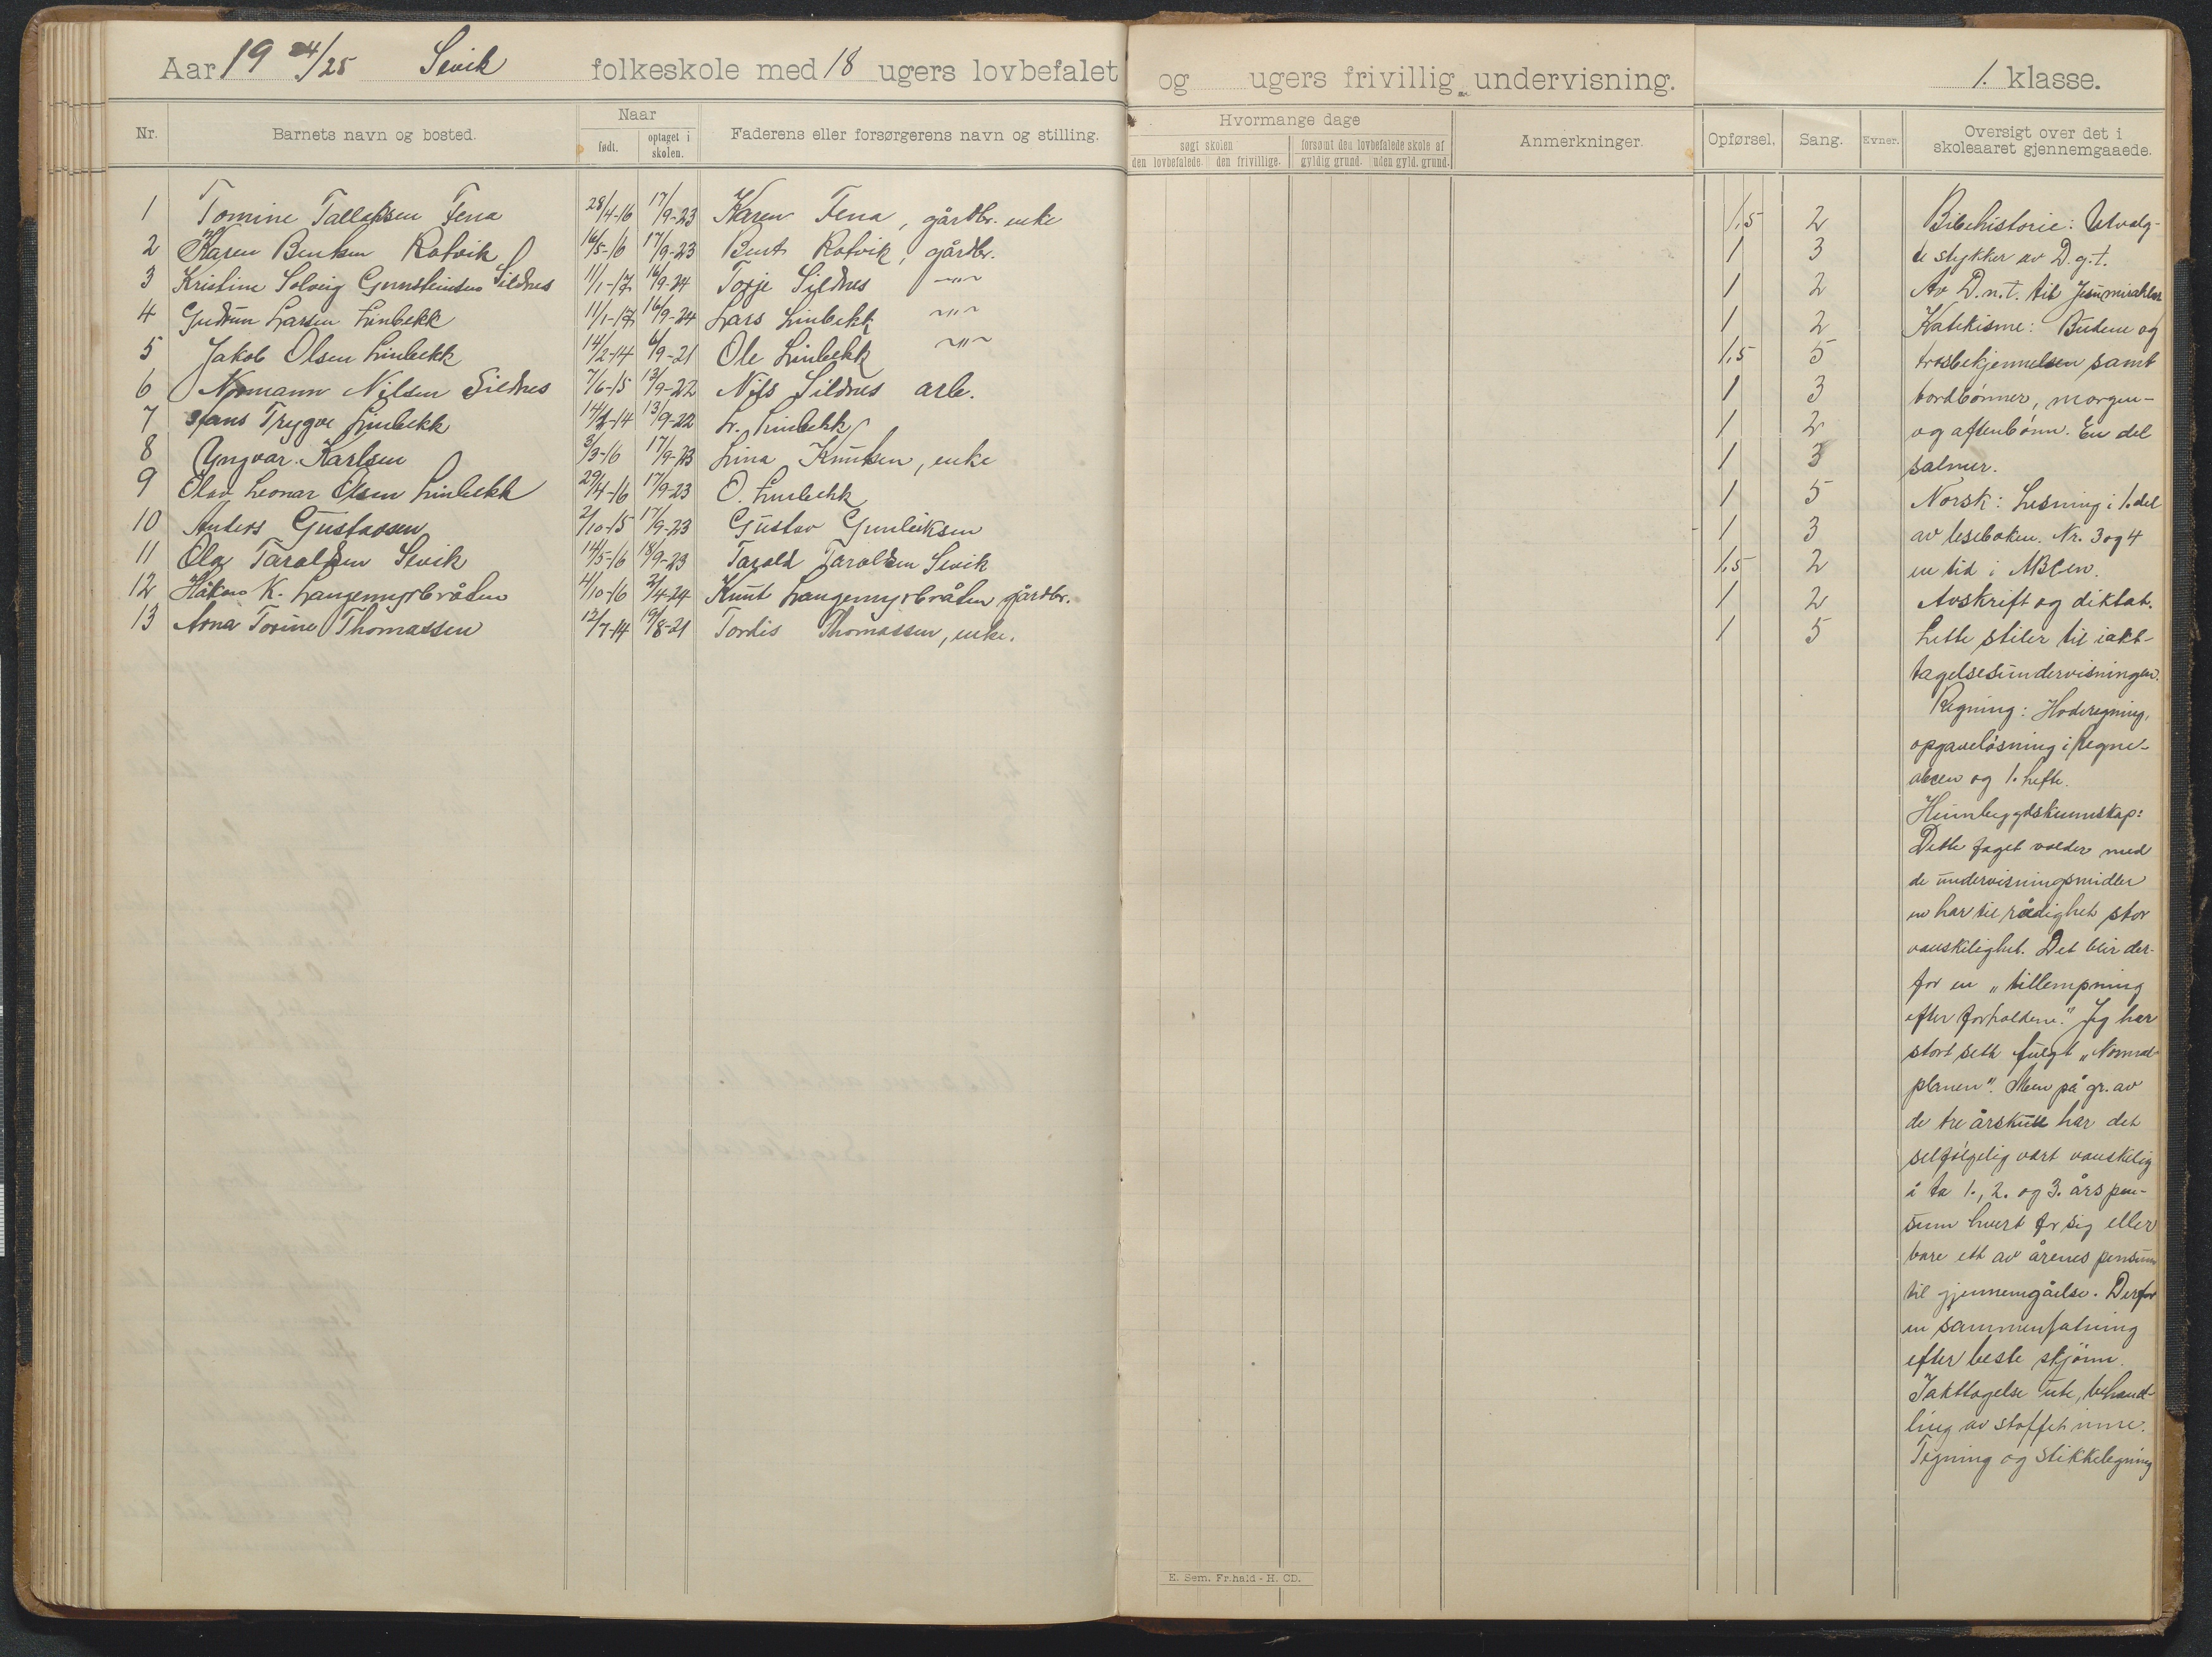 Aar 19 24/25 Sevik folkeskole med 18 ugers lovbefalet og ugers frivillig undervisning. 1. klasse.
Nr. Barnets navn og bosted. Naar født. optaget i skolen. Faderens eller forsørgerens navn og stilling. Hvormange dage søgt skolen den lovbefalede. den frivillige. forsømt den lovbefalede skole af gyldig grund. uden gyld. grund. Anmerkninger. Opførsel. Sang. Evner. Oversigt over det i skoleaaret gjennemgaaede.
1 Tomine Tallaksen Fena 28/4-16 17/9-23 Karen Fena, gårdbr. enke 1,5 2
2 Karen Bentsen Rotvik 16/5-16 17/9-23 Bent Rotvik, gårdbr. 1 3
3 Kristine Solveig Gunsteinsen Sildnes 11/1-17 16/9-24 Torje Sildnes -"- 1 2
4 Gudrun Larsen Linbekk 11/1-17 16/9-24 Lars Linbekk -"- 1 2
5 Jakob Olsen Linbekk 14/2-14 6/9-21 Ole Linbekk -"- 1,5 5
6 Normann Nilsen Sildnes 7/6-15 13/9-22 Nils Sildnes arb. 1 3
7 Hans Trygve Linbekk 14/2-14 13/9-22 L. Linbekk 1 2
8 Yngvar Karlsen 3/3-16 17/9-23 Lina Knutsen, enke 1 3
9 Olav Leonar Olsen Linbekk 29/4-16 17/9-23 O. Linbekk 1 5
10 Anders Gustavsen 2/10-15 17/9-23 Gustav Gunleiksen 1 3
11 Ola Taraldsen Sevik 14/5-16 18/9-23 Tarald Taraldsen Sevik 1,5 2
12 Håkon K. Langemyrbråten 4/10-16 2/4-24 Knut Langemyrbråten gårdbr. 1 2
13 Arna Torine Thomassen 12/7-14 19/8-21 Tordis Thomassen, enke. 1 5
Bibelhistorie: Utvalg-
te stykker av D.g.t.
Av D.n.t. til Jesu mirakler
Katekisme: Budene og
trosbekjennelsen samt
bordbønner, morgen-
og aftenbønn. En del
salmer.
Norsk: Lesning i 1. del
av leseboken. Nr. 3 og 4
en tid i ABCen.
Avskrift og diktat.
Lette stiler til iakt-
tagelsesundervisningen.
Regning: Hoderegning,
opgaveløsning i Regne-
abcen og 1. hefte.
Heimbygdskunnskap:
Dette faget volder med
de undervisningsmidler
en har til rådighet stor
vanskelighet. Det blir der-
for en „tillempning
efter forholdene." Jeg har
stort sett fulgt „Normal-
planen". Men på gr. av
de tre årskull har det
selfølgelig vært vanskelig
å ta 1., 2. og 3. års pen-
sum hvert for sig eller
bare ett av årenes pensum
til gjennemgåelse. Derfor
en sammenfatning
efter beste skjønn.
Iakttagelse ute, behand-
ling av stoffet inne.
Tegning og stikkelegning
E. Sem. Fr.hald - H. CD.